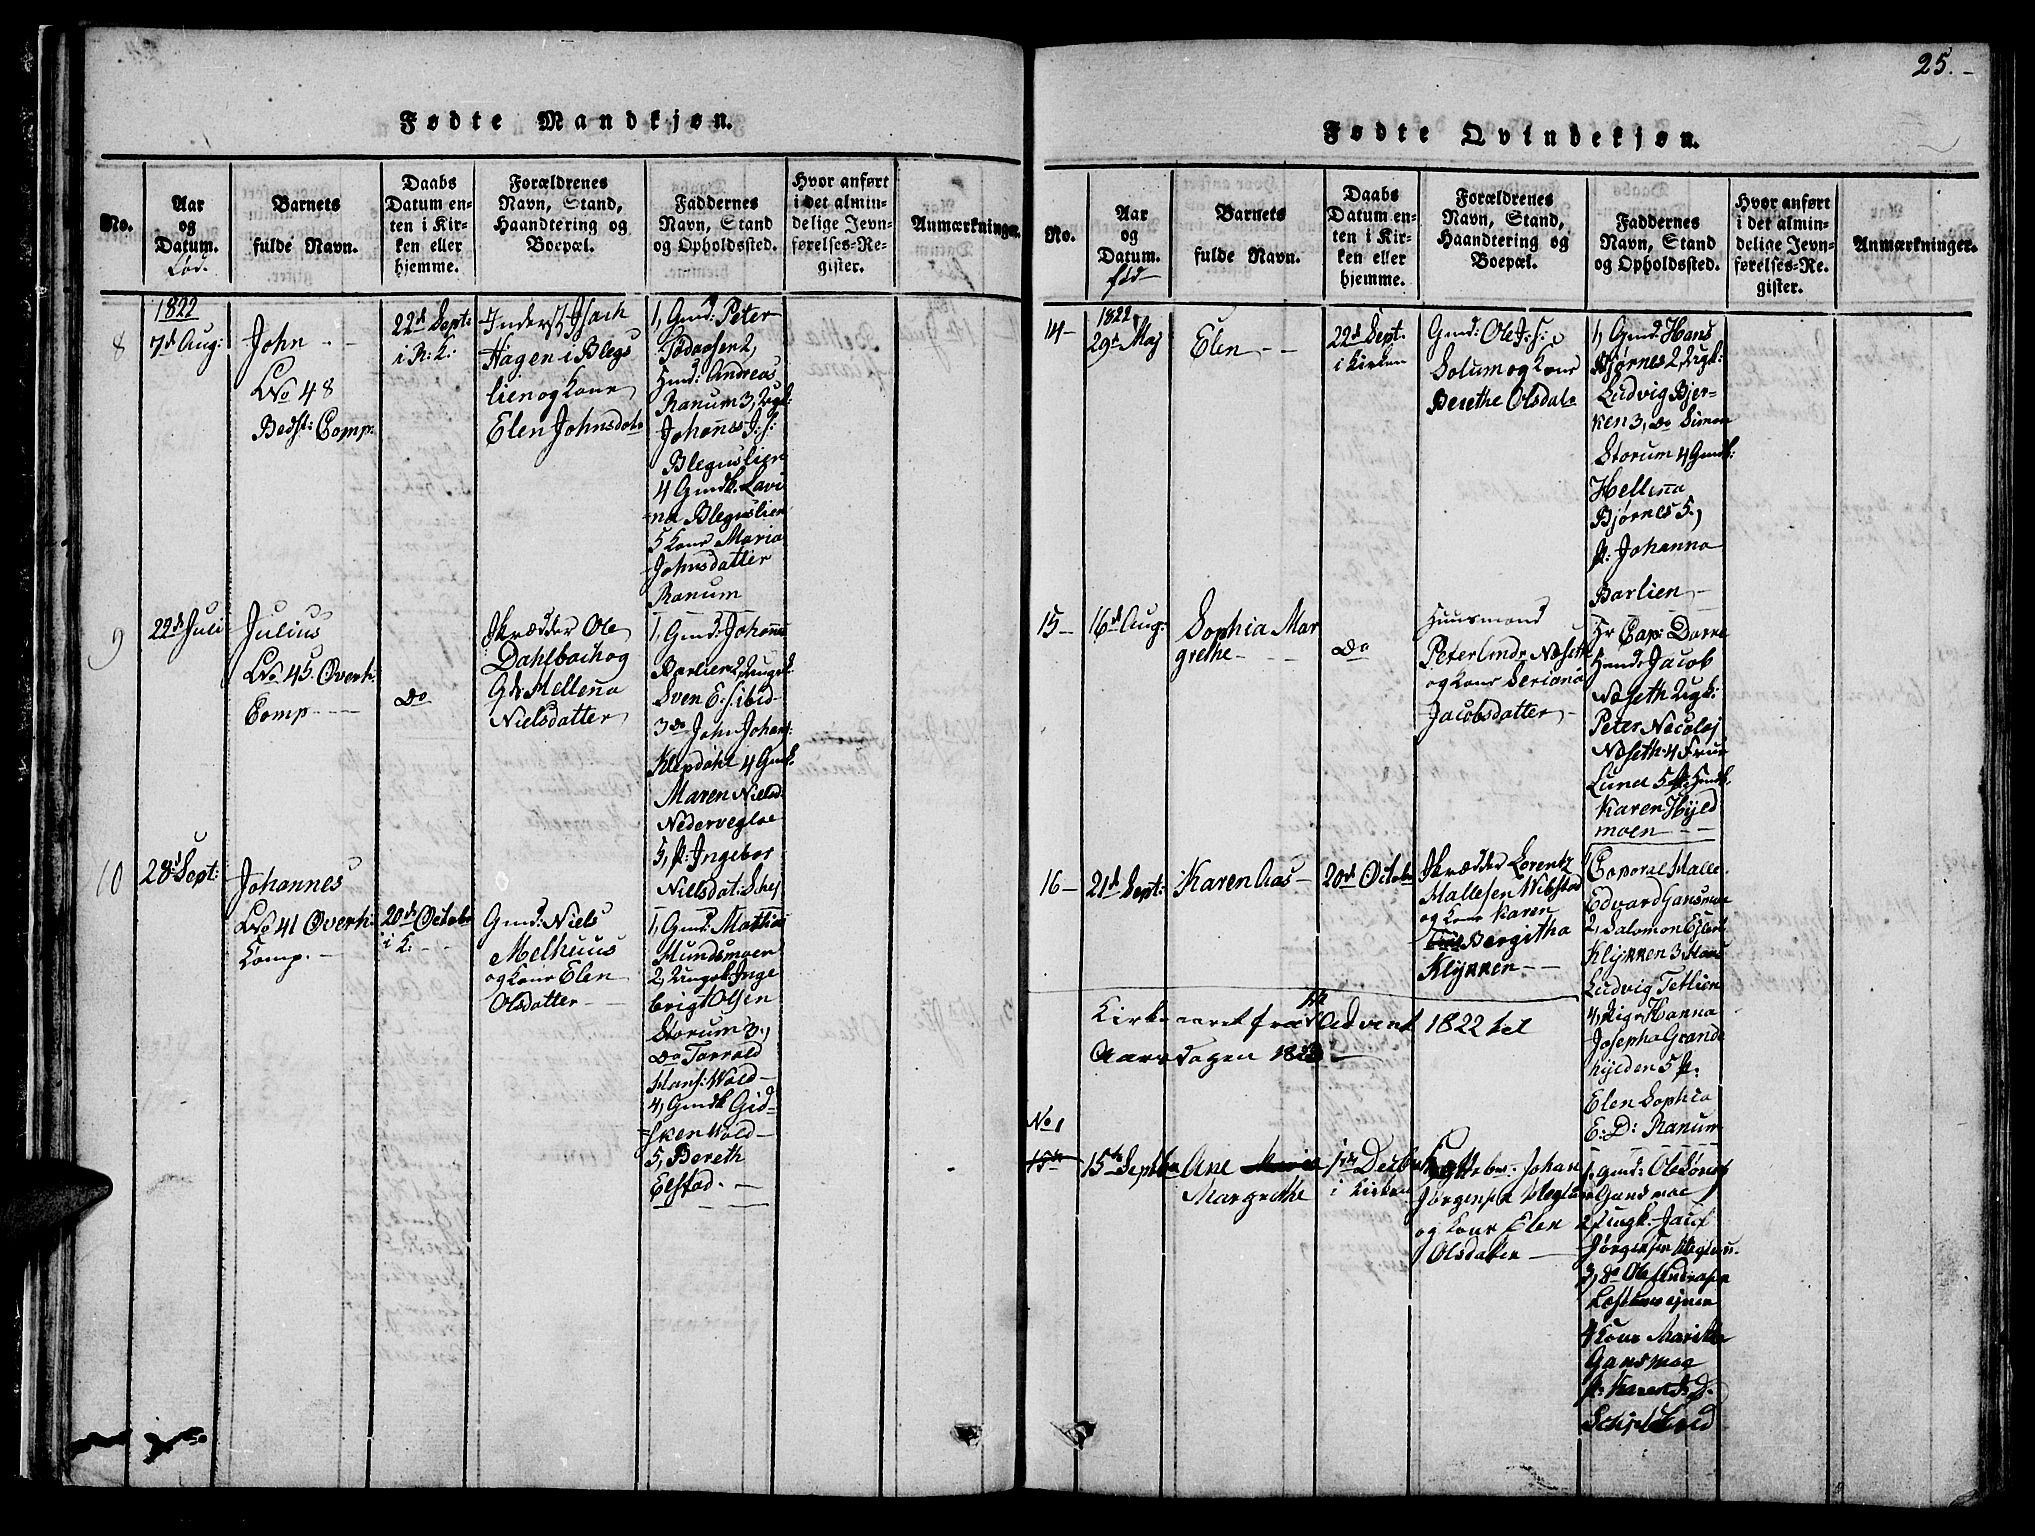 Fødte Mandkjøn.
No.
Aar
og
Datum.
fød.
Barnets
fulde Navn.
Daabs
Datum en-
ten i Kir-
ken eller
hjemme.
Forældrenes
Navn, Stand,
Haandtering og
Boepæl.
Faddernes
Navn, Stand
og Opholdssted.
Hvor anført
i det almin-
delige Jevn-
førelses-Re-
gister.
Anmærkninger.
8
1822
7d Aug:
John
LNo 48
Bedst: Comp:
22d Sept:
i R: K:
Hagen i Blegs
lien og Kone
Elen Johnsdatr
1, Gmd: Peter
2,
Gmd: Andreas
Ranum 3, Ungk:
Johanes J: s:
Blegnslien
4 Gmdk. Lavi
na Blegnslien
5 Kone Maria
Johnsdatter
Ranum
9
22d Juli
Julius
LNo 45 Overh:
Comp
do
Skrædder Ole
Dahlbach og
Mellena
Nielsdatter
1, Gmd: Johannes
Barlien 2, Ungk.
Sven E: s: ibid
3 do John Johans:
Klepdahl 4 Gmk.
Maren Nielsd.
Nedervegloe
5, p: Ingebor
Nielsdat:
10
28d Sept:
Johannes
LNo 41 Overh:
Comp.
20d Octobr
i K:
Gmd: Niels
Melhuus
og Kone Elen
Olsdatter
1, Gmd: Mathias
2, Ungk. Inge
brigt Olsen
Storum 3,
do Torvald
Hans: Wold
4, Gmdk Gid-
sken Wold
5, Bereth
Elstad.
25.
Fødte Qvindekjøn.
No.
Aar
og
Datum.
fød
Barnets
fulde Navn.
Daabs
Datum en-
ten i Kir-
ken eller
hjemme.
Forældrenes
Navn, Stand,
Haandtering og
Boepæl.
Faddernes
Navn, Stand
og Opholdssted.
Hvor anført
i det almin-
delige Jevn-
førelses-Re-
gister.
Anmærkninger.
14
1822
29d Maj
Elen
22d Sept.
i Kirken
Gmd: Ole J: s:
Solum og Kone
Berethe Olsdatr
1, Gmd Hans
Bjørnes 2, Ungk:
Ludvig Bjer-
ken 3, do Simon
Storum 4 Gmdk:
Hellena
Bjørnes 5,
p: Johanna
Barlien
15
16d Aug:
Sophia Mar
grethe
do
Huusmand
Peter Næseth
og Kone Seriana
Jacobsdatter
Hr Cap: Dorre
Jacob
Næseth Ungk:
Peter Necolaj
Næseth 4 Frue
Lund 5
Karen Hyld
moen
16
21d Sept:
Karen Aas
20d Octobr
Skrædder Lorentz
Mallesen Wibstad
og Kone Karen
Bergitha
Klykken
1, Coporal Malle
Edvard Gansmoe
2, Salomon Ejlert
Klykken 3
Ludvig Tetlien
4, Pige Hanna
Josepha Grande
hylden 5 p:
Elen Sophia
E: D: Ranum
Kirkeaaret fra 1ste Advent 1822 til
Aarsdagen 1823
No 1
15de Septbr
Ane Maria
Margrethe
1ste Decbr
i Kirken
Johan
Jørgensen
og Kone Elen
Olsdatter
1, Gmd: Ole
Gansmoe
2, Ungk:
Jørgensen
3, do Ole Andreasen
4 Kone Marith
Gansmoe
p: Karen D.